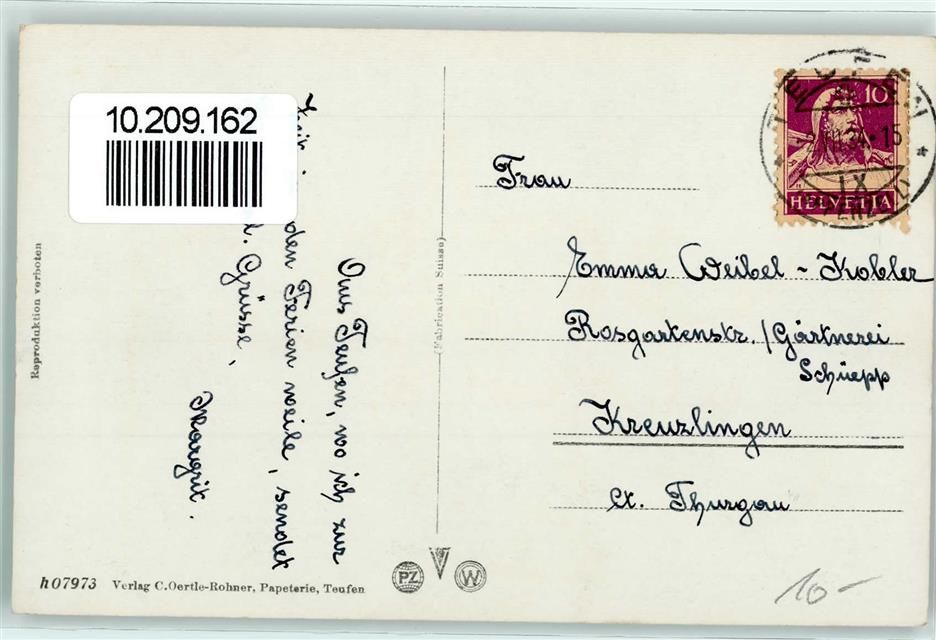 10.209.162
Aus Teufen, wo ich zur
Zeit
den Ferien weile, sendet
l. Grüsse,
Margrit.
Frau
Emma Weibel-Kobler
Rosgartenstr./Gärtnerei
Schüepp
Kreuzlingen
Ct. Thurgau
10
HELVETIA
TEUFEN
34-15
IX
(Fabrication Suisse)
Reproduktion verboten
h07973 Verlag C.Oertle-Rohner, Papeterie, Teufen
PZ
W
10-